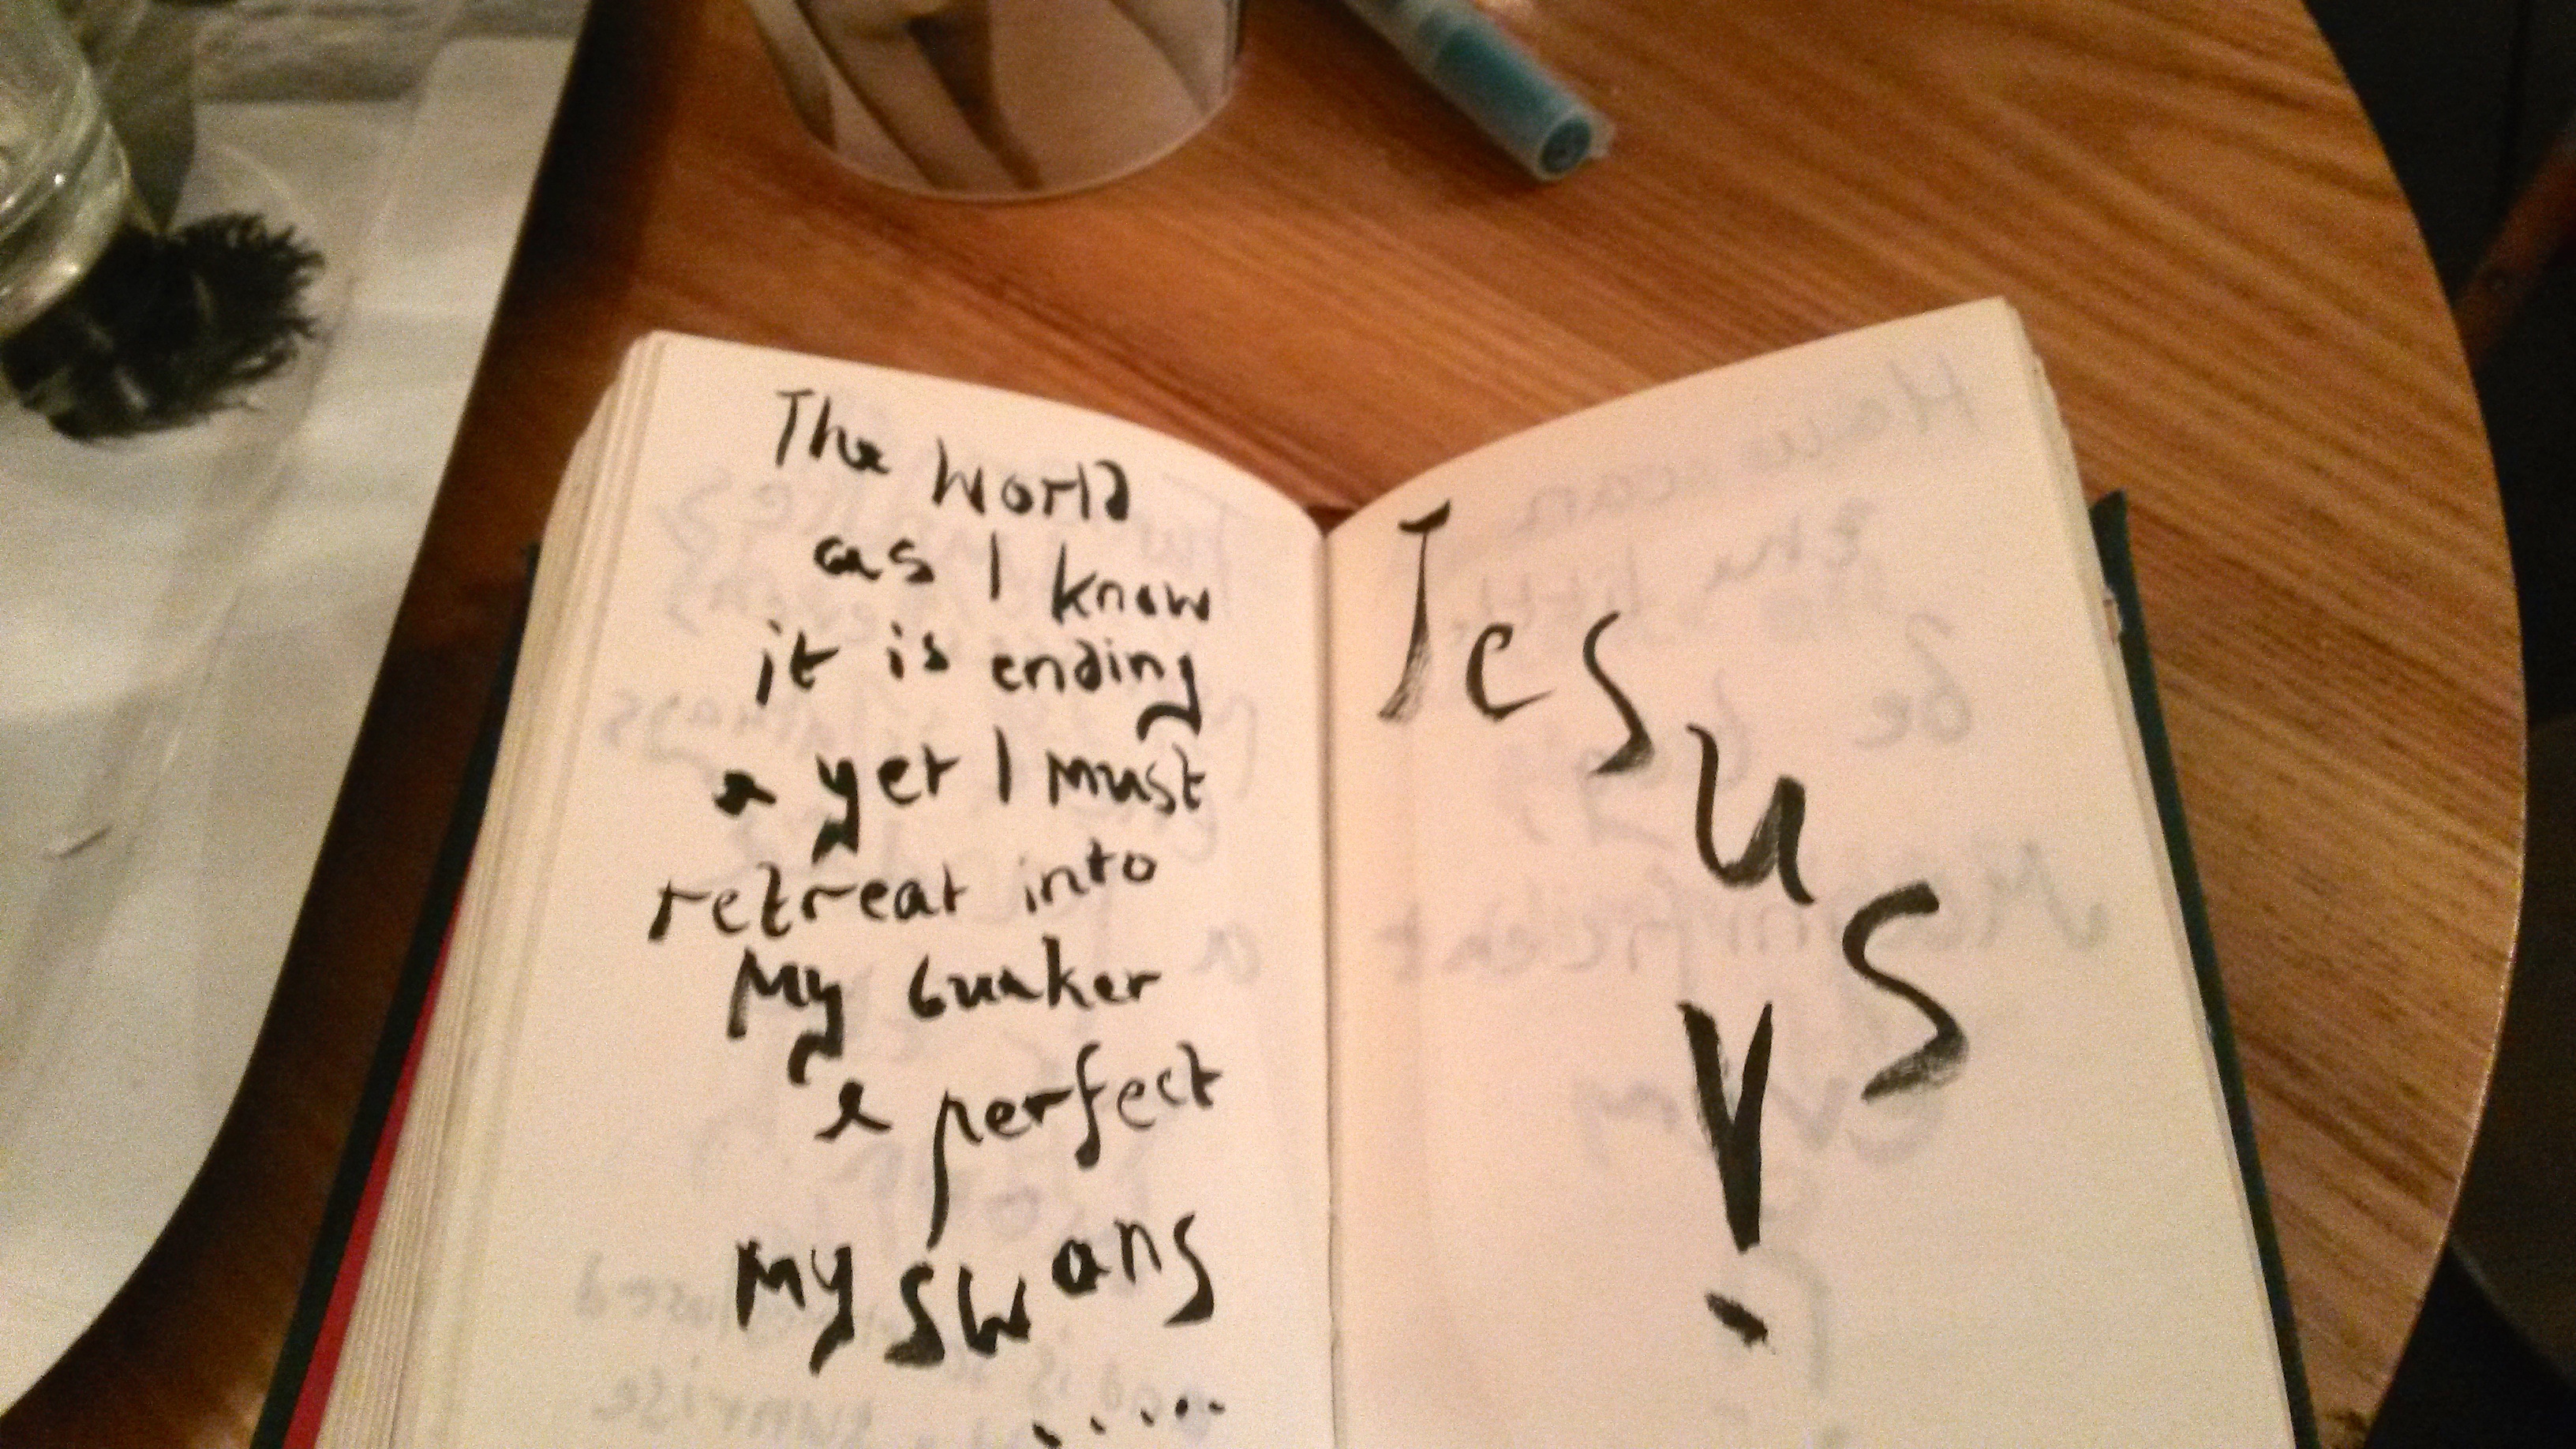 The World
as I know
it is ending
& yet I must
retreat into
My bunker
& perfect
My swans
.....
Jesus
!